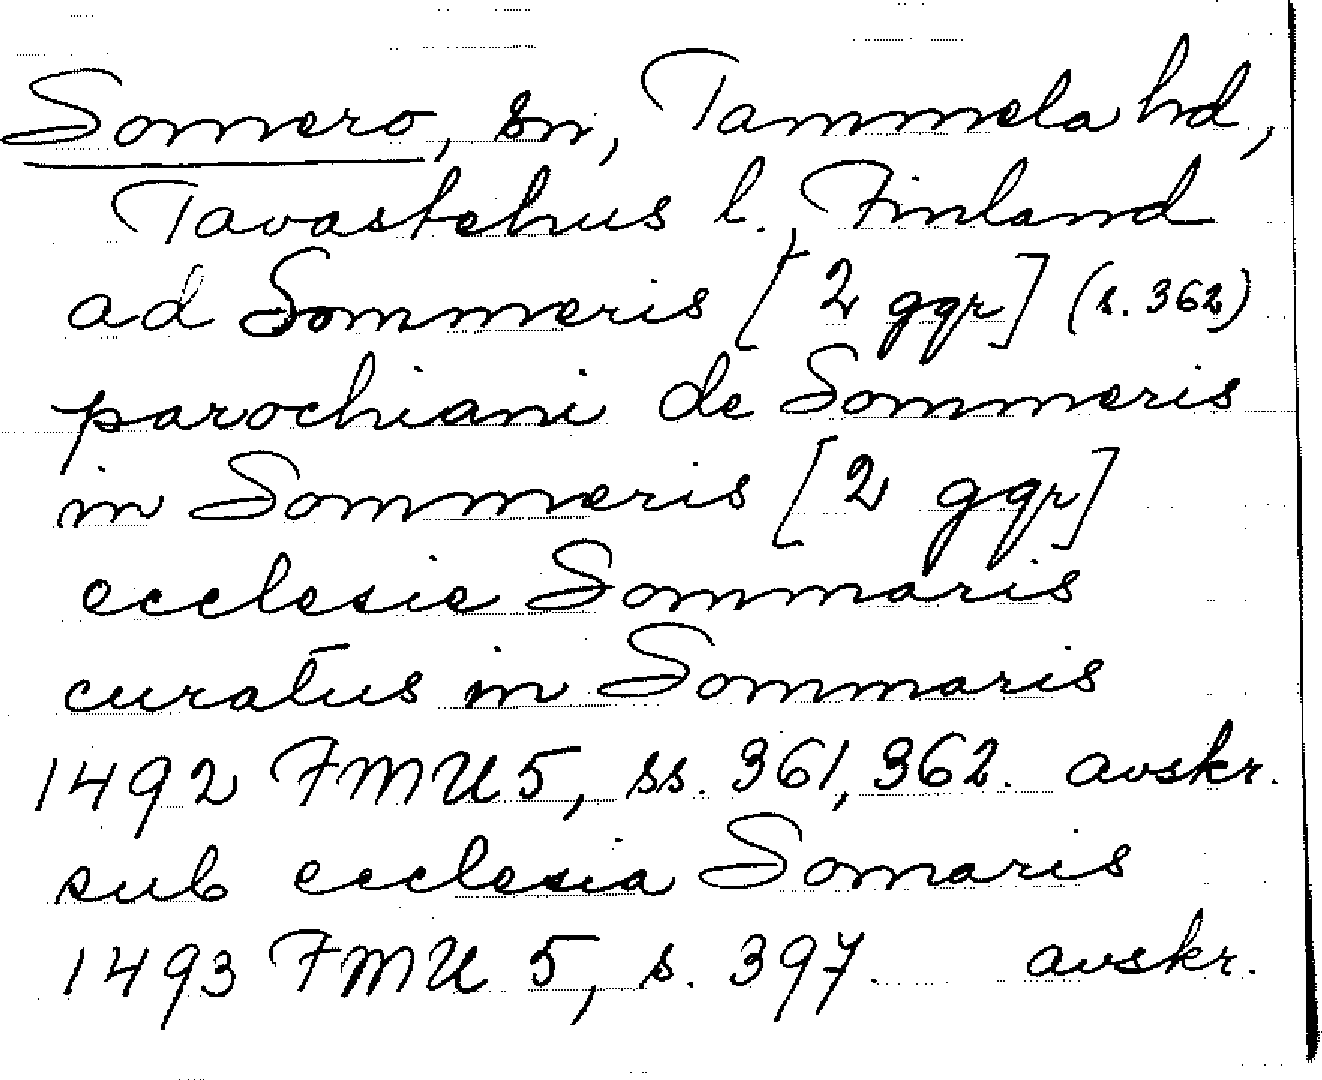 Somero, sn, Tammela hd,
Tavastehus l., Finland
ad Sommeris [2 ggr] (s. 362)
parochiani de Sommeris
in Sommeris [2 ggr]
ecclesie Sommaris
curatus in Sommaris
1492 FMU 5, ss. 361, 362. avskr.
sub ecclesia Somaris
1493 FMU 5, s. 397. avskr.